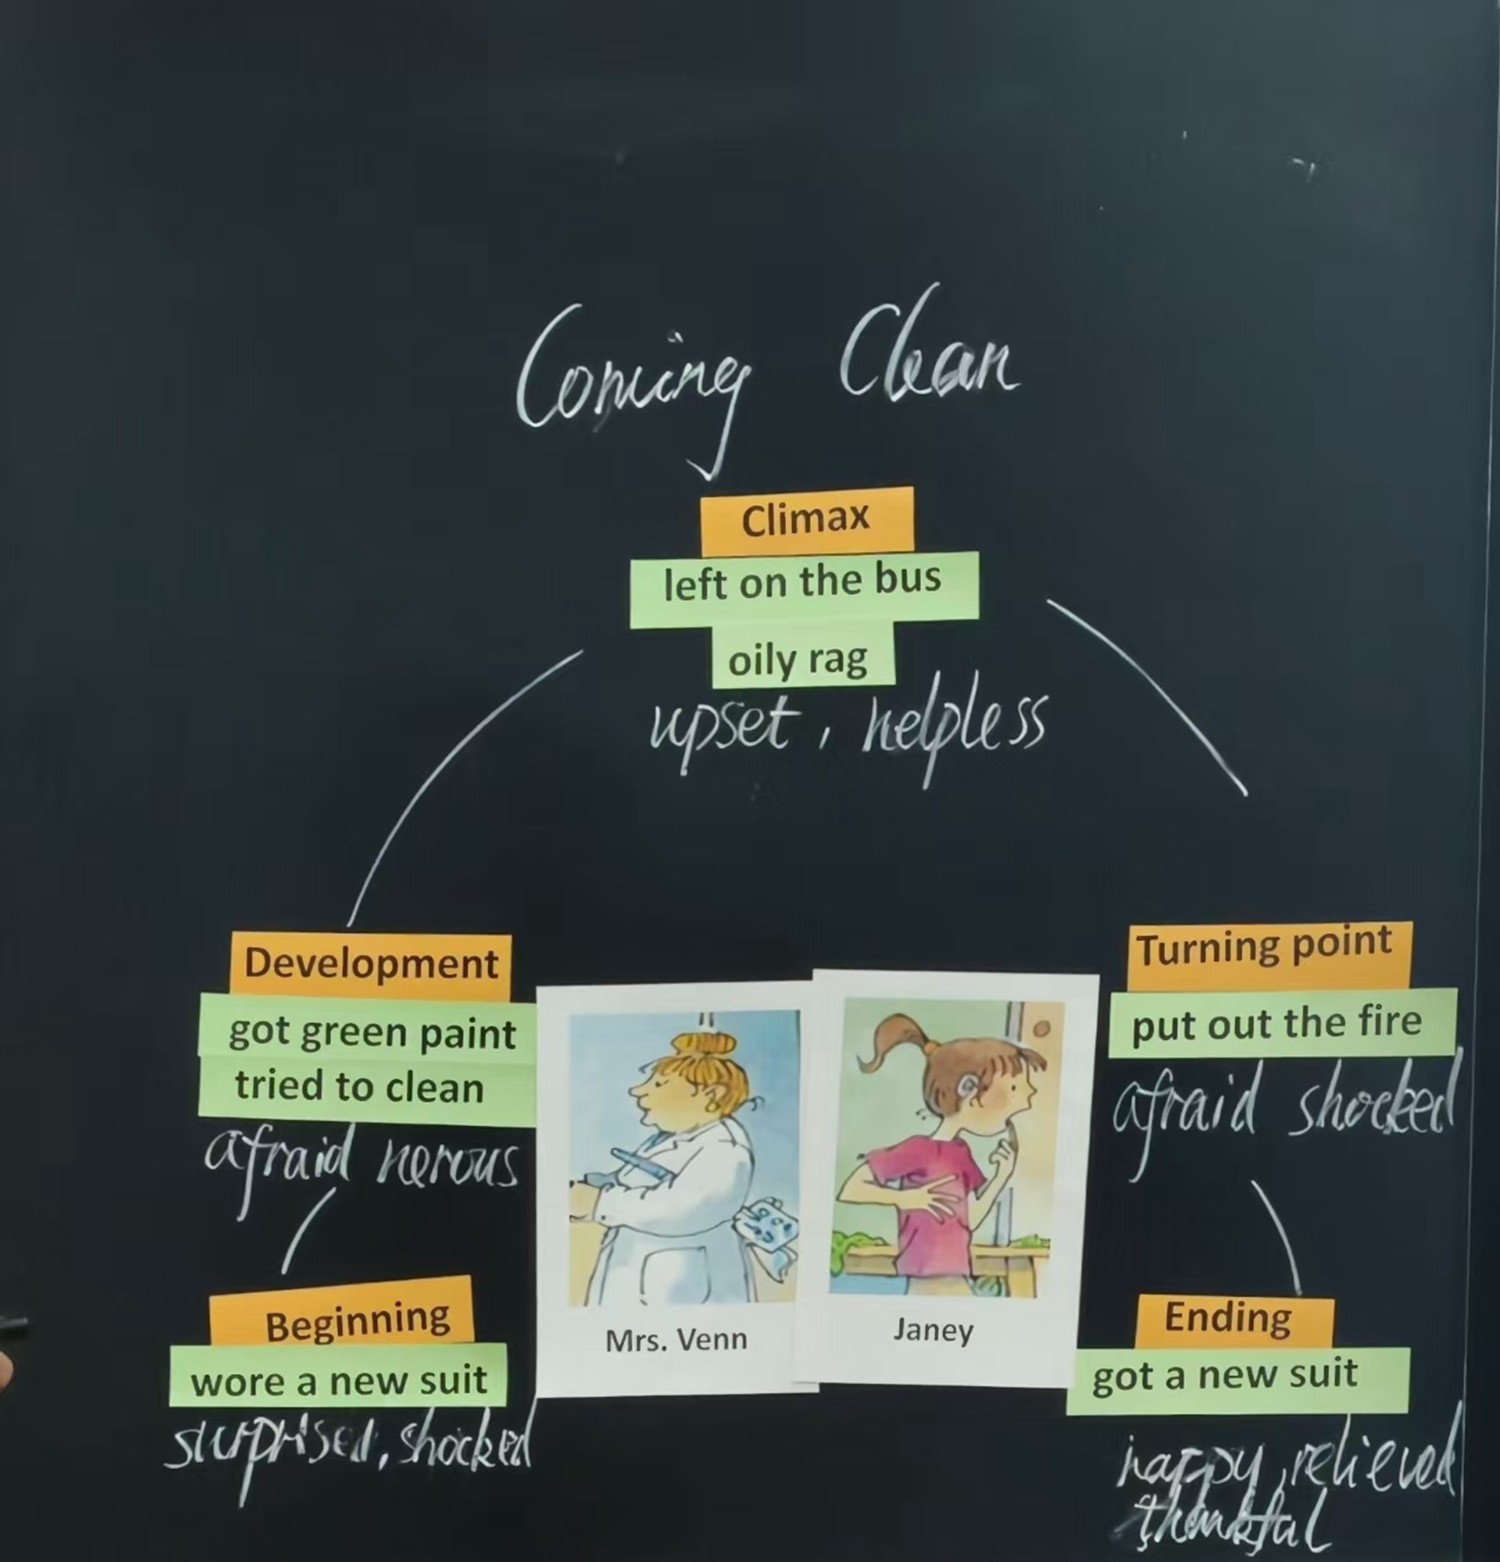 Coming Clean
Climax
left on the bus
oily rag
upset, helpless
Development
got green paint
tried to clean
afraid nerous
Beginning
wore a new suit
surprised, shocked
Mrs. Venn
Janey
Turning point
put out the fire
afraid shocked
Ending
got a new suit
happy, relieved
thankful